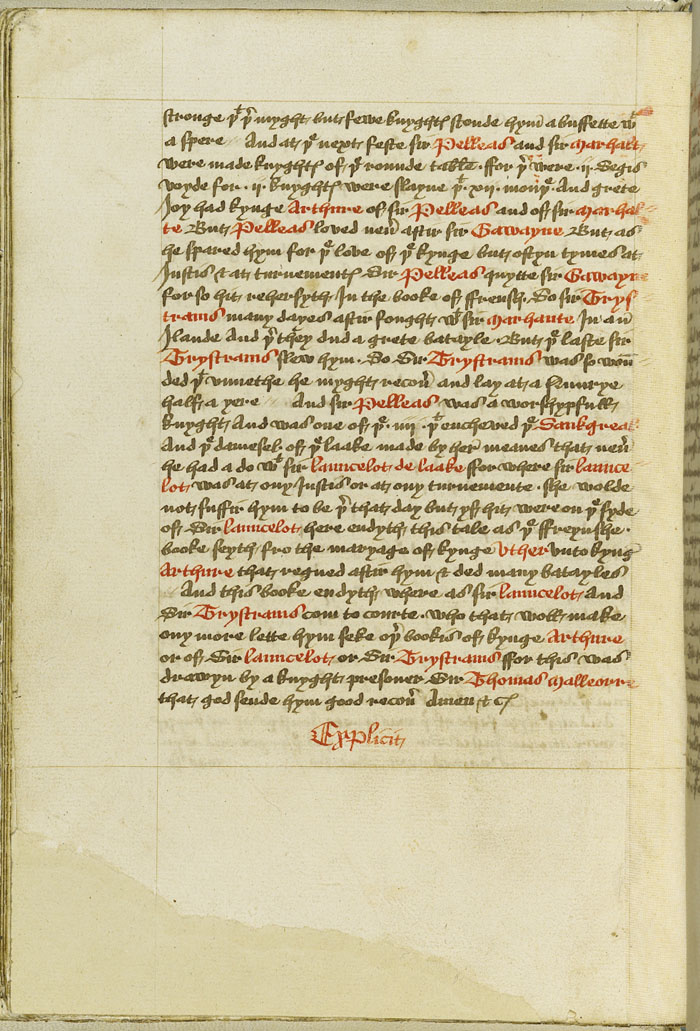 stronge þt þr myght but fewe knyghtes stonde hym a buffette wt
a spere And at þe next feste sir Pelleas and sir Marhalt
were made knyghtes of þe rounde table ffor þr were .ij. Segis
voyde for .ij. knyghtes were slayne þt .xij. monþe And grete
Joy had kynge Arthure of sir Pelleas and off sir Marhal
te But Pelleas loved neuer aftir sir Gawayne But as
he spared hym for þe love of þe kynge but oftyn tymes at
Justis & at turnementes Sir Pelleas quytte sir Gawayne
for so hit rehersyth In the booke of ffrensh. So sir Trys
trams many dayes aftir fought wt sir Marhaute In an
Ilande And þr they dud a grete batayle But þe laste sir
Trystrams slew hym So Sir Trystrams was so woun
ded þt vnnethe he myght recouer and lay at a Nunrye
halff a yere And sir Pelleas was a worshypfull
knyght And was one of þe .iiij. þt encheved þe Sankgreal
And þe damesel of þe laake made by her meanes that neuer
he had a do wt sir launcelot de laake ffor where sir launce
lot was at ony Justis or at ony turnemente she wolde
not suffir hym to be þr that day but yff hit were on þe syde
of Sir launcelot here endyth this tale as þe ffreynshe
booke seyth fro the maryage of kynge Vther vnto kyng
Arthure that regned aftir hym & ded many batayles
And this booke endyth where as sir launcelot And
Sir Trystrams com to courte. who that woll make
ony more lette hym seke oþer bookis of kynge Arthure
or of Sir launcelot or Sir Trystrams ffor this was
drawyn by a knyght presoner Sir Thomas Malleorre
that god sende hym good recouer Amen &c
Explicit